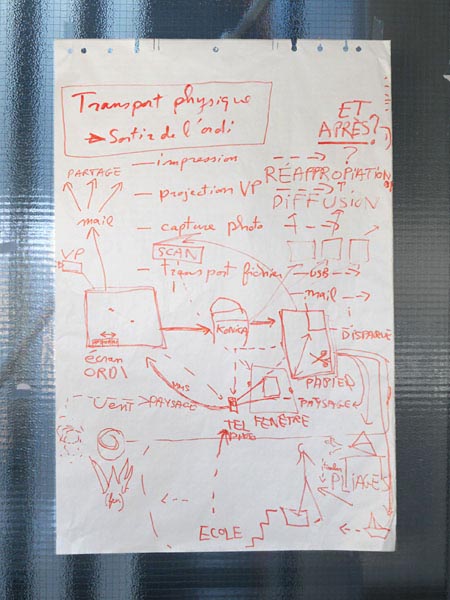 Transport physique
→ Sortir de l'ordi
ET
APRÈS?
— impression
PARTAGE
RÉAPPROPIATION
— projection VP
DIFFUSION
mail
— capture photo
SCAN
VP
— transport fichier
USB
mail
KONICA
DISPARUE
écran
ORDI
PAPIER
MMS
Vent
PAYSAGE
PAYSAGER
TEL
FENÊTRE
PLIAGES
(feu)
ECOLE